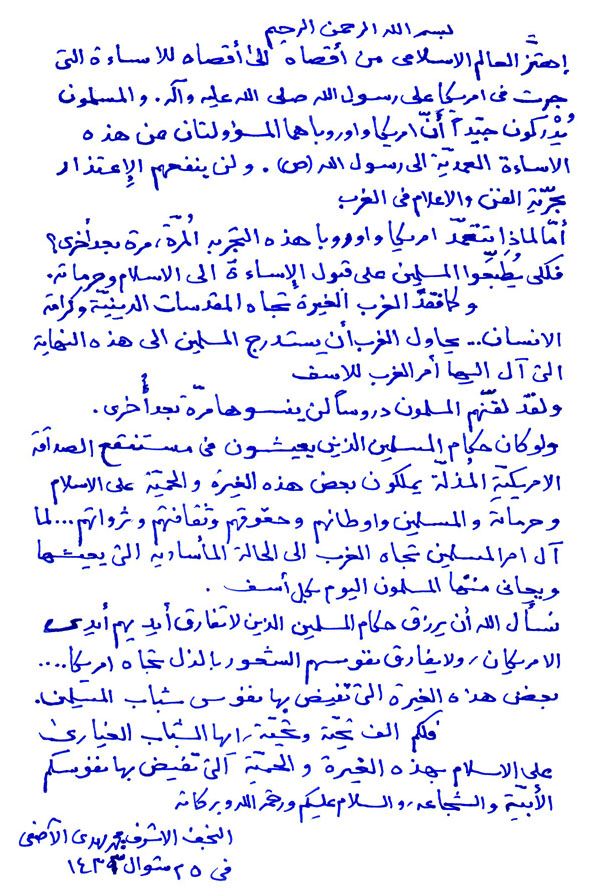 بسم الله الرحمن الرحيم
إهتزَّ العالم الاسلامي من أقصاه الى أقصاه للاساءة التي
جرت في امريكا على رسول الله صلى الله عليه وآله. والمسلمون
يُدْركون جيّداً أَنَّ امريكا واوروبا هما المسؤولتان عن هذه
الاساءة العمديّة الى رسول الله (ص). ولن ينفعهم الإعتذار
بحرّيّة الفن والاعلام في الغرب
أمّا لماذا تتعمّد امريكا واوروبا هذه التجربه المُرّة، مرة بعد أخرى؟
فلكي يُطَبِّعوا المسلمين على قبول الإساءة الى الاسلام وحرماته.
وكما فقدَ الغرب الغيرة تجاه المقدسات الدينيّة وكرامة
الانسان... يحاول الغرب أن يستدرج المسلمين الى هذه النهاية
التي آل اليها أمر الغرب للاسف
ولقدْ لقنّهم المسلمون دروساً لن ينسوها مرّة بعد أُخرى.
ولو كان حكام المسلمين الذين يعيشون في مستنقع الصداقة
الامريكيّة المُذلّة يملكون بعض هذه الغيرة والحميّة على الاسلام
وحرماته والمسلمين واوطانهم وحقوقهم وثقافتهم وثرواتهم... لما
آل امر المسلمين تجاه الغرب الى الحالة المأساوية التي يعيشها
ويعاني منها المسلمون اليوم بكل أسف.
نسأل الله أن يرزق حكام المسلمين الذين لا تفارق أيديهم أيدي
الامريكان، ولا يفارق نفوسهم الشعور بالذل تجاه امريكا....
بعض هذه الغيرة التي تفيض بها نفوس شباب المسلمين.
فلكم الف تحيّة وتحيّة، ايها الشباب الغيارى
على الاسلام بهذه الغيرة والحميّة التي تفيض بها نفوسكم
الأبيّة والشجاعه، والسلام عليكم ورحمة الله وبركاته
النجف الاشرف محمد مهدي الآصفي
في ٢٥ شوال ١٤٣٣